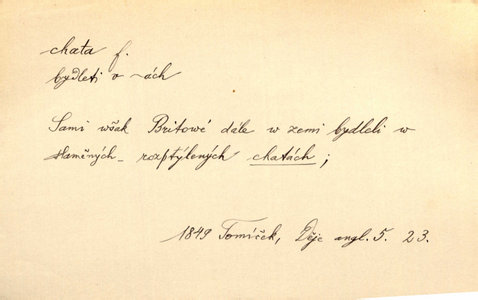 chata f.
bydleti v -ách
Sami však Britowé dále w zemi bydleli w
slaměných rozptýlených chatách;
1849 Tomíček, Děje angl. 5. 23.